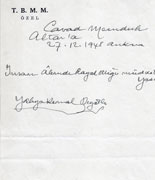 T. B. M. M.
ÖZEL
27.12.1948 Ankara
İnsan Âlemde hayal ettiği müddetçe
Yaşar
Yahya Kemal Beyatlı